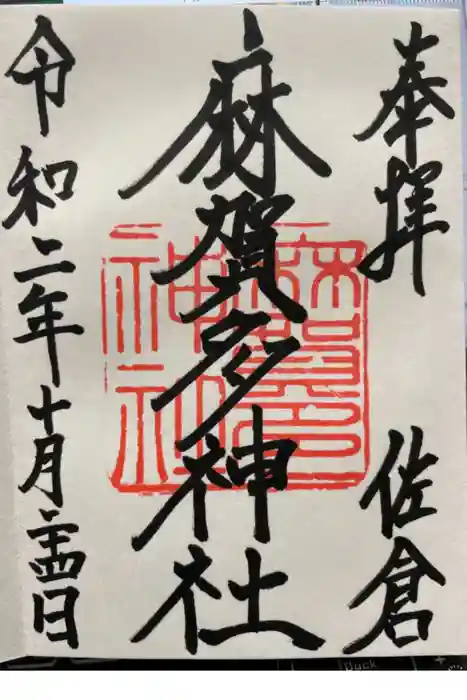 奉拝　佐倉
麻賀多神社
麻賀多
神社
令和二年十月二十四日